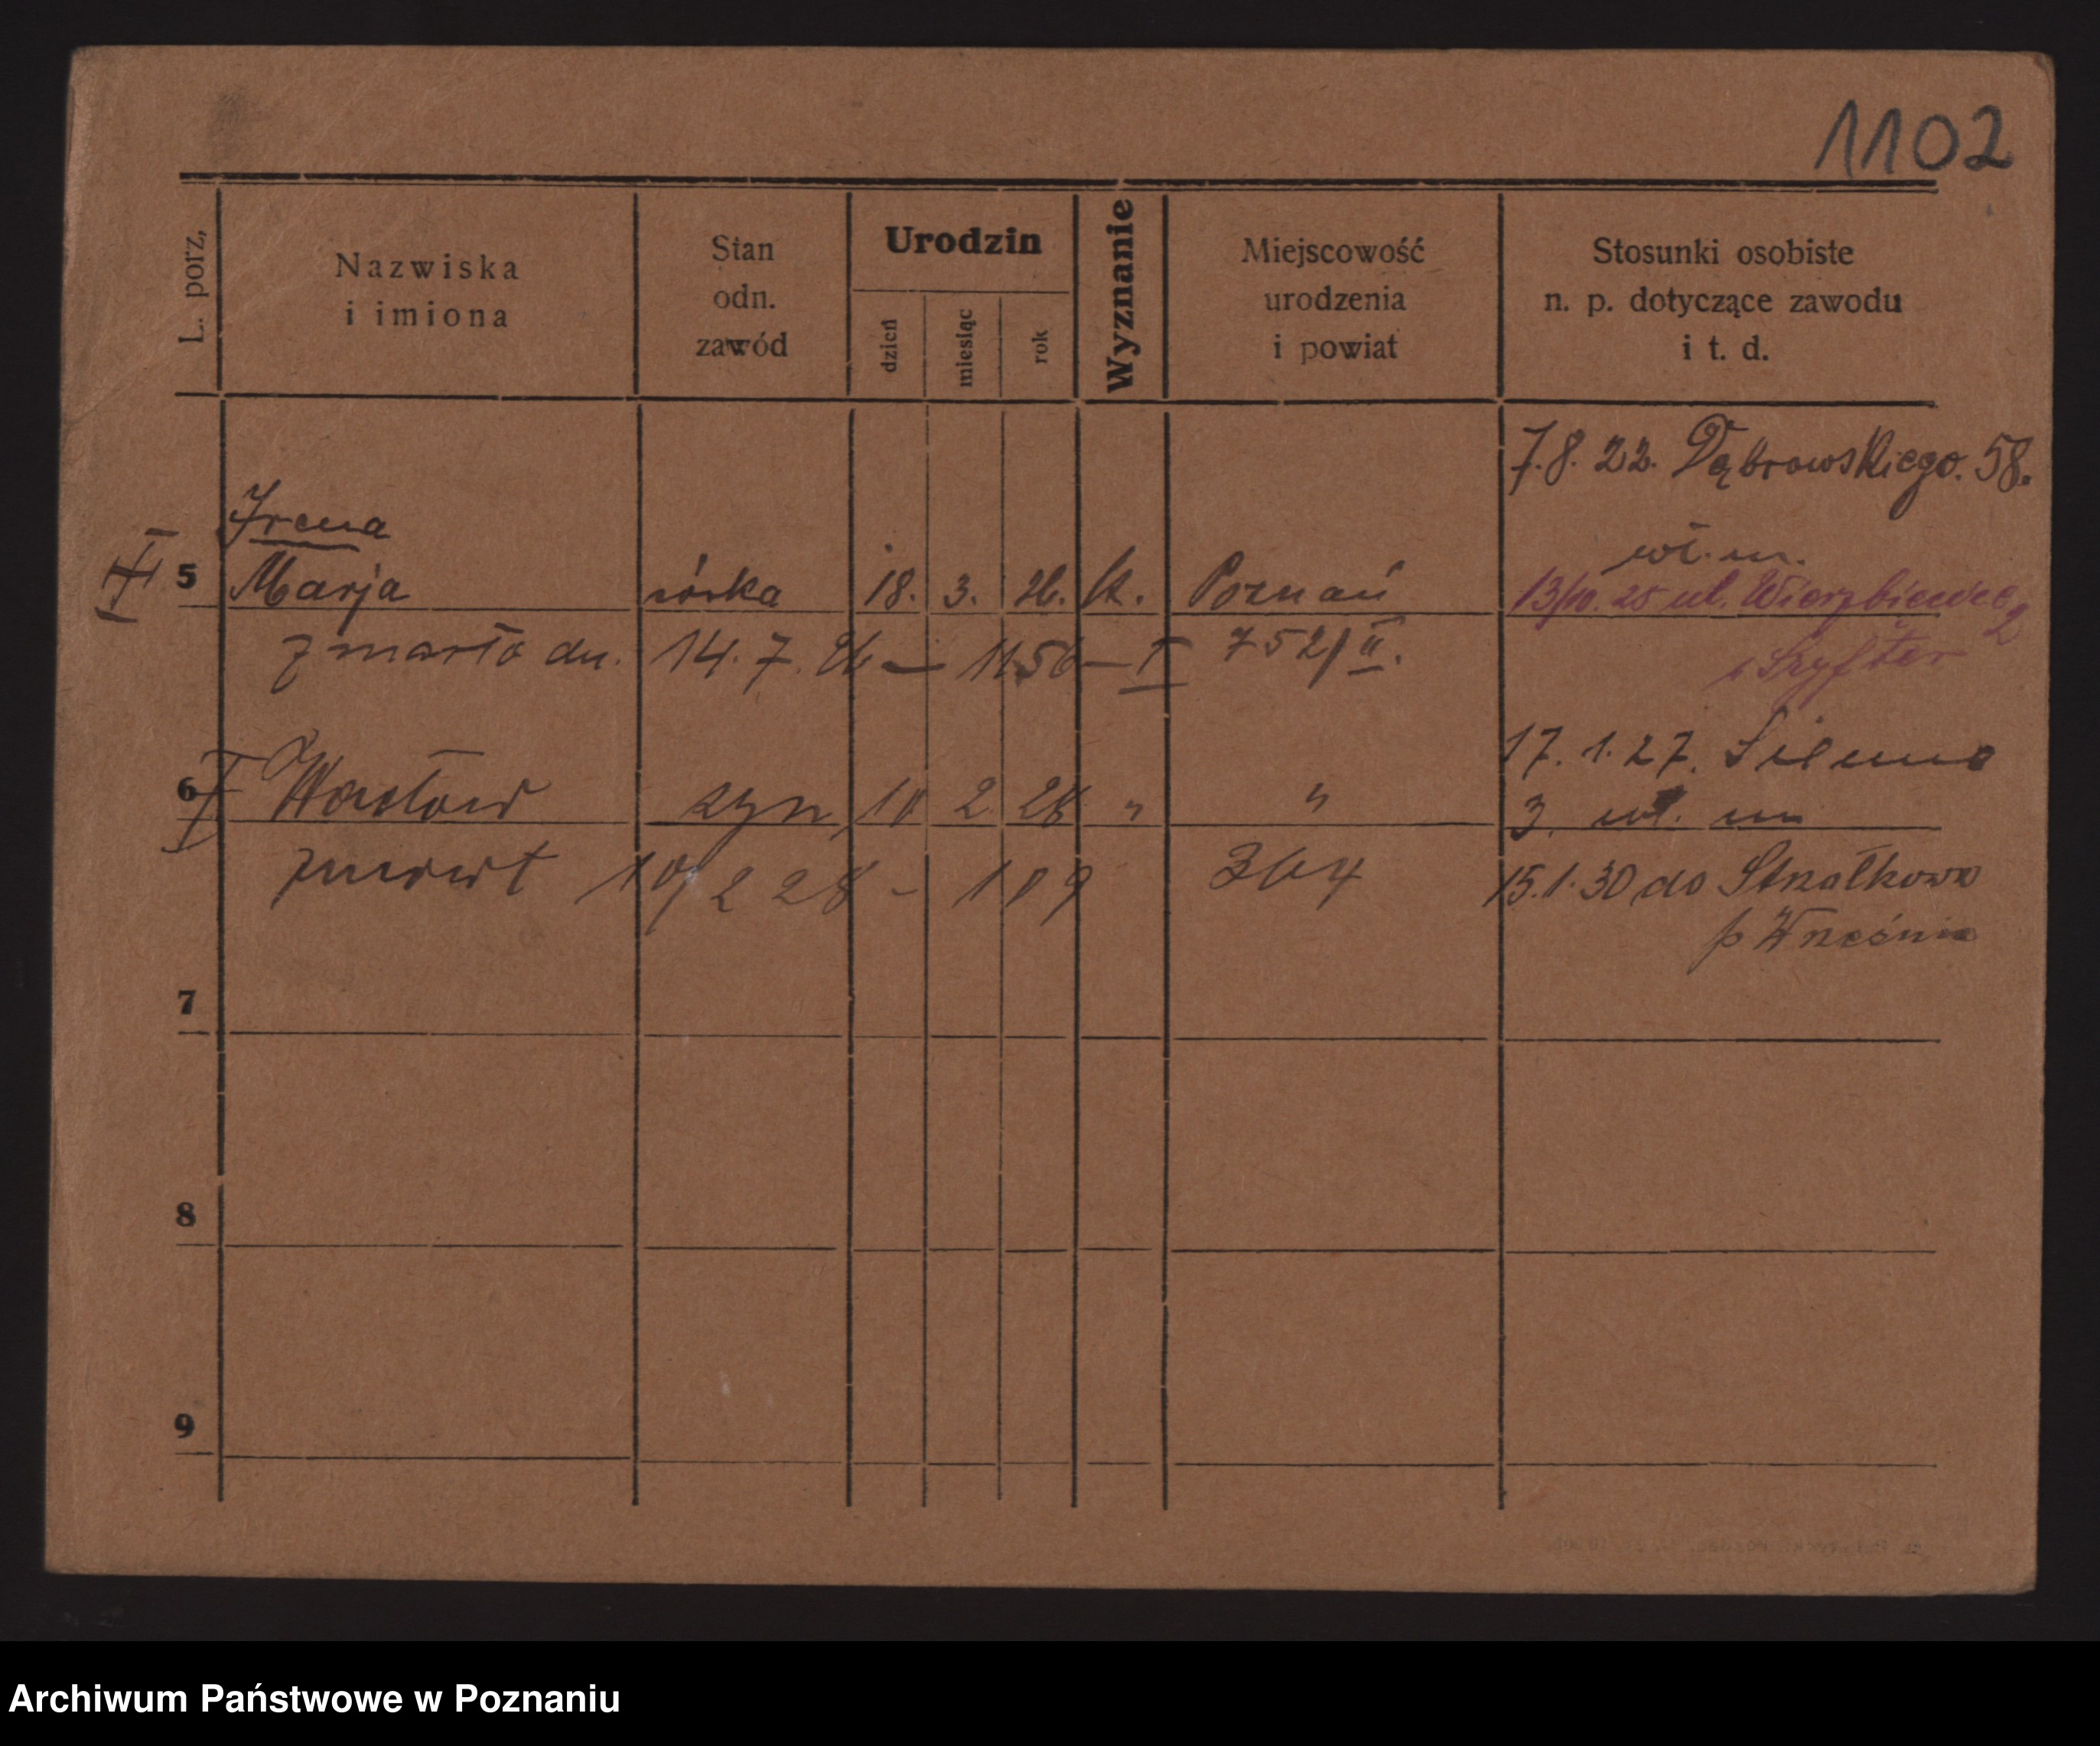 1102
L. porz,
Nazwiska
i imiona
Stan
odn.
zawód
Urodzin
dzień
miesiąc
rok
Wyznanie
Miejscowość
urodzenia
i powiat
Stosunki osobiste
n. p. dotyczące zawodu
i t. d.
7.8.22. Dąbrowskiego. 58.
Irena
wł. m.
5 Marja córka 18. 3. 26. kt. Poznań 13/10. 25 ul. Wierzbięcice 2
zmarła dn. 14. 7. 26 — 1156 — I 752/II.
i Szyfter
17. 1. 27.
6 Wacław syn 10 2 28 " "
3. wł. m
zmarł 10/2 28 - 109 364 15.1.30 do Strzałkowa
p Września
7
8
9
Archiwum Państwowe w Poznaniu